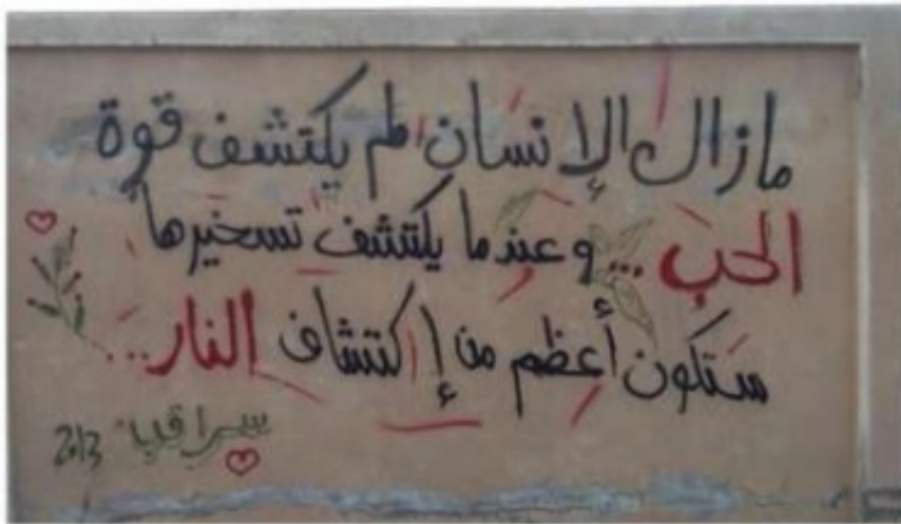 مازال الإنسان لم يكتشف قوة
الحب ... وعندما يكتشف تسخيرها
ستكون أعظم من إكتشاف النار...
سراقب 2013